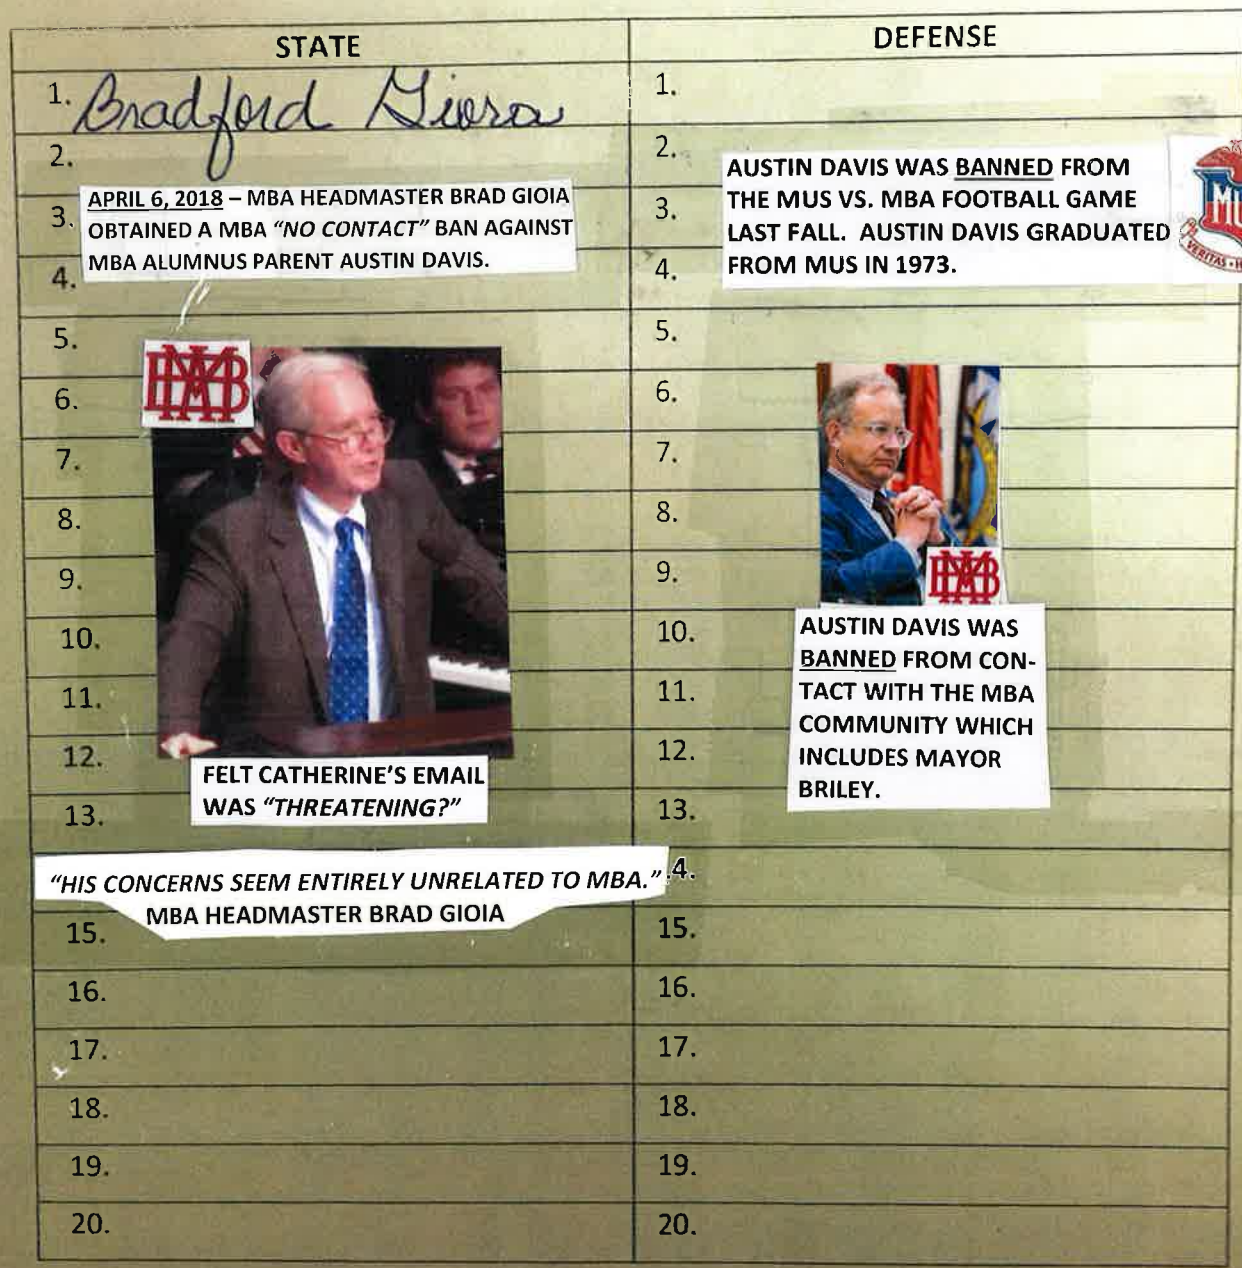 STATE
DEFENSE
1. Bradford Giora
2.
APRIL 6, 2018 – MBA HEADMASTER BRAD GIOIA
3. OBTAINED A MBA “NO CONTACT” BAN AGAINST
MBA ALUMNUS PARENT AUSTIN DAVIS.
4.
5.
MBA
6.
7.
8.
9.
10.
11.
12.
FELT CATHERINE’S EMAIL
WAS “THREATENING?”
13.
“HIS CONCERNS SEEM ENTIRELY UNRELATED TO MBA.”
MBA HEADMASTER BRAD GIOIA
15.
16.
17.
18.
19.
20.
1.
2.
AUSTIN DAVIS WAS BANNED FROM
THE MUS VS. MBA FOOTBALL GAME
3.
LAST FALL. AUSTIN DAVIS GRADUATED
FROM MUS IN 1973.
4.
MU
VERITAS • H
5.
6.
7.
8.
9.
MBA
10.
AUSTIN DAVIS WAS
BANNED FROM CON-
11.
TACT WITH THE MBA
COMMUNITY WHICH
12.
INCLUDES MAYOR
BRILEY.
13.
4.
15.
16.
17.
18.
19.
20.